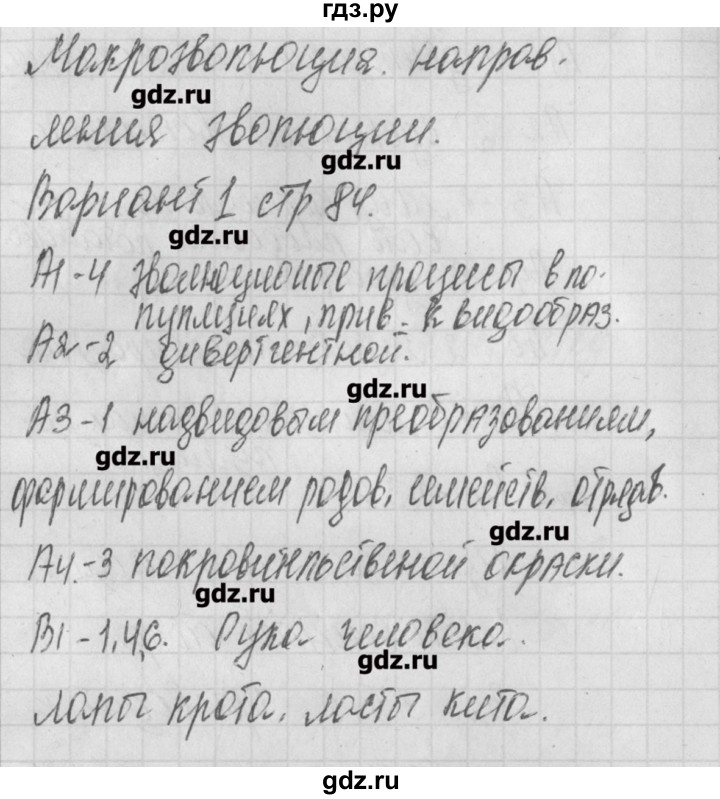 гдз.ру
Макроэволюция. направ-
gdz.ru
ления эволюции.
gdz.ru
Вариант 1 стр 84.
gdz.ru
А1-4 эволюционые процессы в по-
пуляциях, прив. к видообраз.
А2-2 дивергентной.
gdz.ru
А3-1 надвидовым преобразованиям,
gdz.ru
формированием родов, семейств, отрядов.
gdz.ru
А4.-3 покровительственой окраски.
gdz.ru
В1-1,4,6. Рука человека.
gdz.ru
лапы крота, ласты кита.
gdz.ru